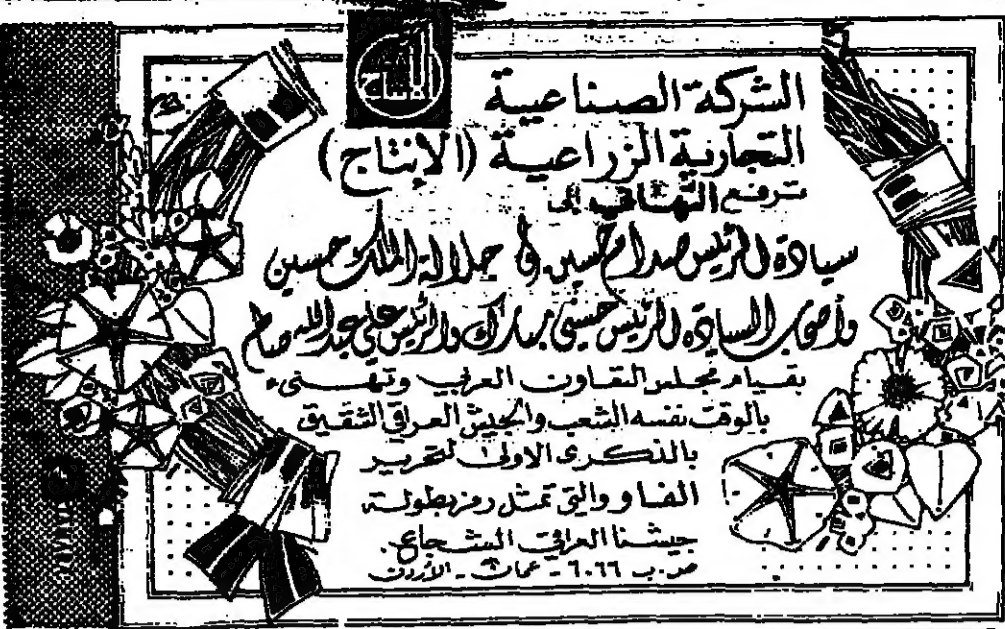 الإنتاج
الشركة الصناعية
التجارية الزراعية (الإنتاج)
ترفع التهاني إلى
سيادة الرئيس صدام حسين و جلالة الملك حسين
وأصحاب السيادة الرئيس حسني مبارك والرئيس علي عبدالله صالح
بقيام مجلس التعاون العربي وتهنىء
بالوقت نفسه الشعب والجيش العراقي الشقيق
بالذكرى الاولى لتحرير
الفاو والتي تمثل رمز بطولة
جيشنا العراقي الشجاع.
ص.ب ٦٠٦٦ - عمان - الأردن